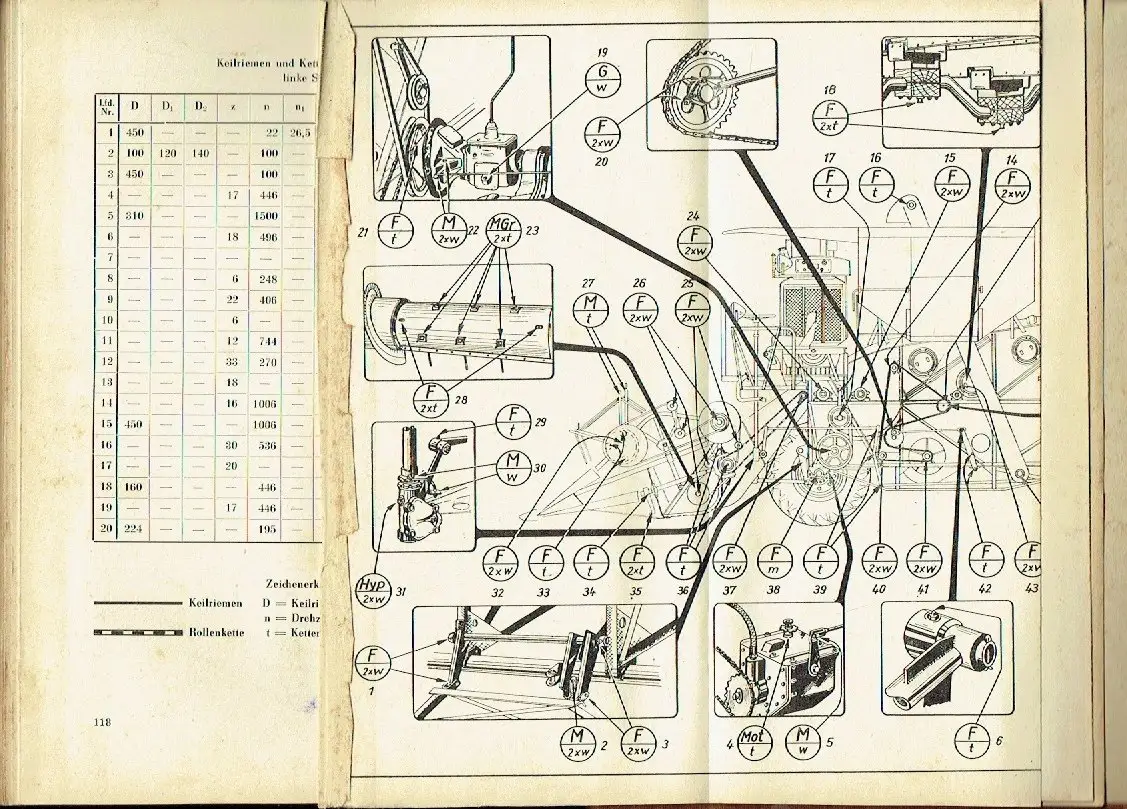 Keilriemen und Kett
linke S
Lfd. Nr. D D₁ D₂ z n n₁
1 450 — — — 22 26,5
2 100 120 140 — 100
3 450 — — — 100
4 — — — 17 446
5 310 — — — 1500
6 — — — 18 496
7 — — — — —
8 — — — 6 248
9 — — — 22 406
10 — — — 6 —
11 — — — 12 744
12 — — — 33 270
13 — — — 18 —
14 — — — 16 1006
15 450 — — — 1006
16 — — — 30 536
17 — — — 20 —
18 160 — — — 446
19 — — — 17 446
20 224 — — — 195
Zeichenerk
Keilriemen D = Keilri
n = Drehz
Rollenkette t = Ketten
118
19
G
w
F
2xw
20
18
F
2xt
17 16 15 14
F
t
F
t
F
2xw
F
2xw
21
F
t
M
2xw
22
MGr
2xt
23
24
F
2xw
27 26 25
M
t
F
2xw
F
2xw
F
2xt
28
F
t
29
M
w
30
Hyp
2xw
31
F
2xw
F
t
F
t
F
2xt
F
t
F
2xw
F
m
F
t
F
2xw
F
2xw
F
t
F
2xw
32 33 34 35 36 37 38 39 40 41 42 43
F
2xw
1
M
2xw
2
F
2xw
3
4
Mot
t
M
w
5
F
t
6